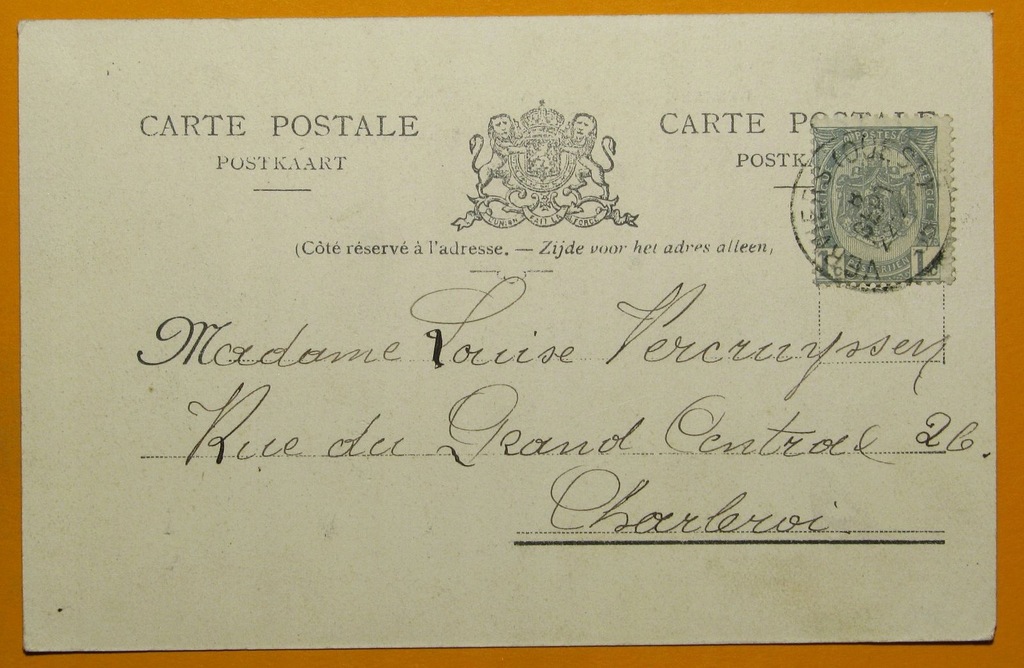 CARTE POSTALE
POSTKAART
CARTE POSTALE
POSTK
L'UNION FAIT LA FORCE
POSTES
VERVIERS
1 1
(Côté réservé à l'adresse. — Zijde voor het adres alleen)
Madame Louise Vercruyssen
Rue du Grand Central 26.
Charleroi